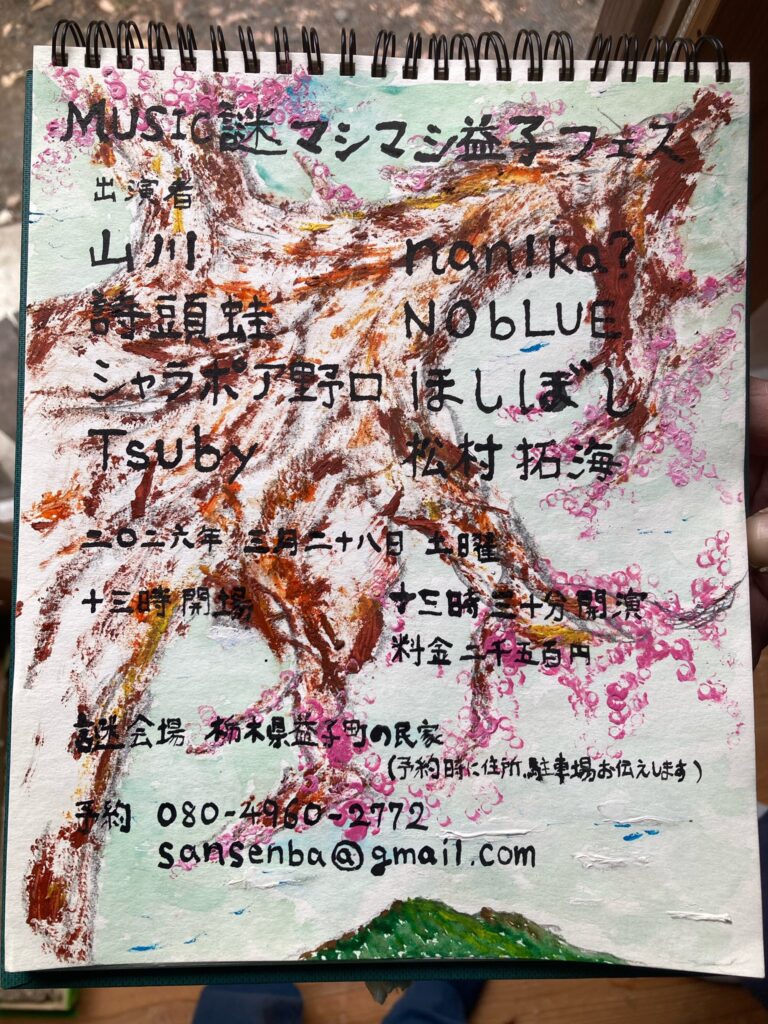 MUSIC謎マシマシ益子フェス
出演者
山川 nan!ka?
詩頭蛙 NObLUE
シャラポア野口 ほしぼし
Tsuby 松村拓海
二〇二六年 三月二十八日 土曜
十三時開場 十三時三十分開演
料金二千五百円
謎会場 栃木県益子町の民家
(予約時に住所、駐車場お伝えします)
予約 080-4960-2772
sansenba@gmail.com